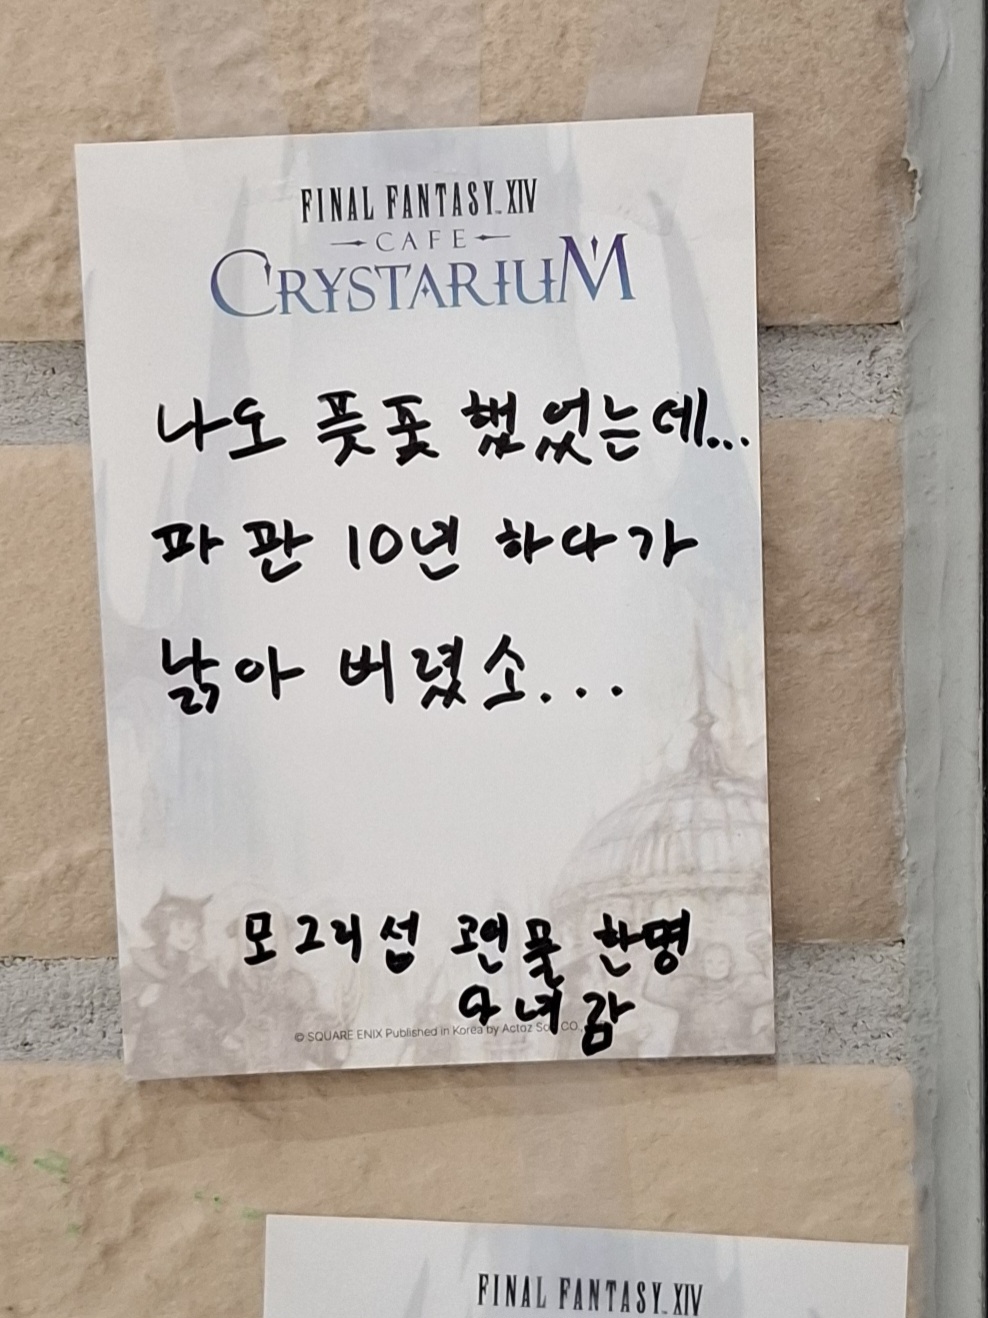 FINAL FANTASY XIV
CAFE
CRYSTARIUM
나도 풋풋 했었는데...
파판 10년 하다가
낡아 버렸소...
모그리섭 고인물 한명
다녀감
© SQUARE ENIX Published in Korea by Actoz
FINAL FANTASY XIV